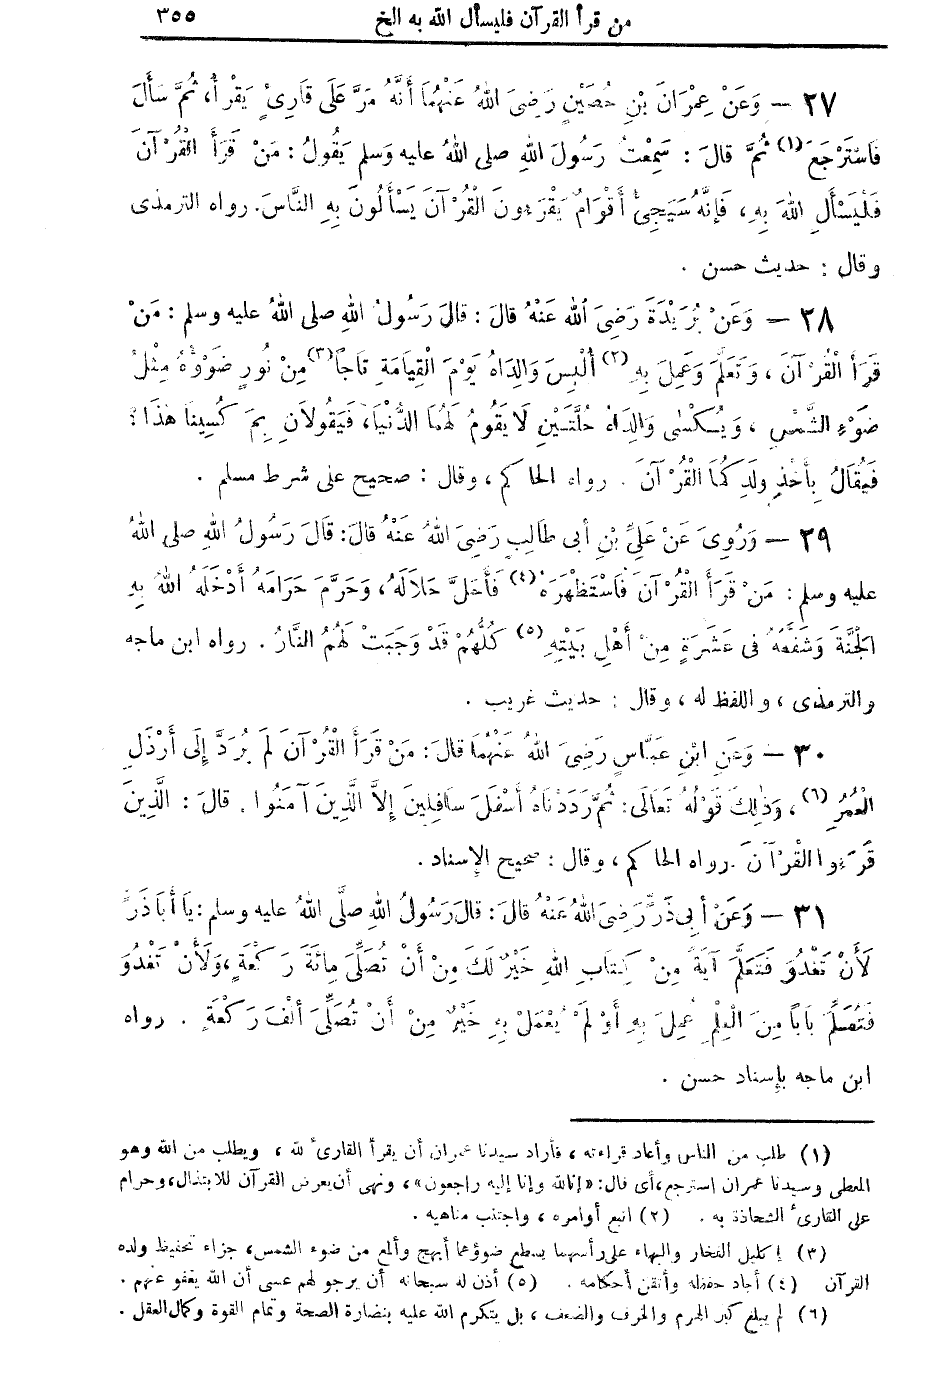 من قرأ القرآن فليسأل الله به الخ ٣٥٥
٢٧ — وَعَنْ عِمْرَانَ بْنِ حُصَيْنٍ رَضِيَ اللهُ عَنْهُمَا أَنَّهُ مَرَّ عَلَى قَارِئٍ يَقْرَأُ، ثُمَّ سَأَلَ
فَاسْتَرْجَعَ (١) ثُمَّ قالَ : سَمِعْتُ رَسُولَ اللهِ صلى اللهُ عليه وَسلم يَقُولُ : مَنْ قَرَأَ الْقُرْآنَ
فَلْيَسْأَلِ اللهَ بِهِ، فَإِنَّهُ سَيَجِئُ أَقْوَامٌ يَقْرَءُونَ الْقُرْآنَ يَسْأَلُونَ بِهِ النَّاسَ. رواه الترمذى
وقال : حديث حسن .
٢٨ — وَعَنْ بُرَيْدَةَ رَضِيَ اللهُ عَنْهُ قالَ : قالَ رَسُولُ اللهِ صلى اللهُ عليه وسلم : مَنْ
قَرَأَ الْقُرْآنَ ، وَتَعَلَّمَ وَعَمِلَ بِهِ (٢) أُلْبِسَ وَالِدَاهُ يَوْمَ الْقِيَامَةِ تَاجًا (٣) مِنْ نُورٍ ضَوْؤُهُ مِثْلُ
ضَوْءِ الشَّمْسِ ، وَيُكْسٰى وَالِدَاهُ حُلَّتَيْنِ لَا يَقُومُ لَهُمَا الدُّنْيَا، فَيَقُولَانِ بِمَ كُسِينَا هٰذَا ؟
فَيُقَالُ بِأَخْذِ وَلَدِكُمَا الْقُرْآنَ . رواه الحاكم ، وقال : صحيح على شرط مسلم .
٢٩ — وَرُوِيَ عَنْ عَلِيِّ بْنِ أبى طَالِبٍ رَضِيَ اللهُ عَنْهُ قالَ: قَالَ رَسُولُ اللهِ صلى اللهُ
عليه وسلم : مَنْ قَرَأَ الْقُرْآنَ فَاسْتَظْهَرَهُ (٤) فَأَحَلَّ حَلَالَهُ، وَحَرَّمَ حَرَامَهُ أَدْخَلَهُ اللهُ بِهِ
الْجَنَّةَ وَشَفَّعَهُ فى عَشَرَةٍ مِنْ أَهْلِ بَيْتِهِ (٥) كُلُّهُمْ قَدْ وَجَبَتْ لَهُمُ النَّارُ . رواه ابن ماجه
والترمذى ، واللفظ له ، وقال : حديث غريب .
٣٠ — وَعَنِ ابْنِ عَبَّاسٍ رَضِيَ اللهُ عَنْهُمَا قالَ: مَنْ قَرَأَ الْقُرْآنَ لَمْ يُرَدَّ إِلَى أَرْذَلِ
الْعُمُرِ (٦) ، وَذٰلِكَ قَوْلُهُ تَعَالَى: ثُمَّ رَدَدْنَاهُ أَسْفَلَ سَافِلِينَ إِلاَّ الَّذِينَ آمَنُوا . قالَ : الَّذِينَ
قَرَءُوا الْقُرْآنَ . رواه الحاكم ، وقال : صحيح الإسناد .
٣١ — وَعَنْ أبِى ذَرٍّ رَضِيَ اللهُ عَنْهُ قالَ : قالَ رَسُولُ اللهِ صلَّى اللهُ عليه وسلم : يَا أَبَا ذَرٍّ
لَأَنْ تَغْدُوَ فَتَعَلَّمَ آيَةً مِنْ كِتَابِ اللهِ خَيْرٌ لَكَ مِنْ أَنْ تُصَلِّىَ مِائَةَ رَكْعَةٍ، وَلَأَنْ تَغْدُوَ
فَتُعَلِّمَ بَابًا مِنَ الْعِلْمِ عُمِلَ بِهِ أَوْ لَمْ يُعْمَلْ بِهِ خَيْرٌ مِنْ أَنْ تُصَلِّىَ أَلْفَ رَكْعَةٍ . رواه
ابن ماجه بإسناد حسن .
(١) طلب من الناس وأعاد قراءته ، فأراد سيدنا عمران أن يقرأ القارئ لله ، ويطلب من الله وهو
المعطى وسيدنا عمران استرجع، أى قال: «إنا لله وإنا إليه راجعون»، ونهى أن يعرض القرآن للابتذال، وحرام
على القارئ الشحاذة به . (٢) اتبع أوامره ، واجتنب مناهيه .
(٣) إكليل الفخار والبهاء على رأسهما يسطع ضوؤهما أبهج وألمع من ضوء الشمس، جزاء تحفيظ ولده
القرآن (٤) أجاد حفظه وأتقن أحكامه . (٥) أذن له سبحانه أن يرجو لهم عسى أن الله يعفو عنهم .
(٦) لم يبلغ كبر الهرم والخرف والضعف ، بل يتكرم الله عليه بنضارة الصحة وتمام القوة وكمال العقل .